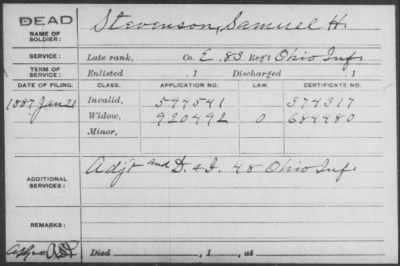 DEAD
NAME OF SOLDIER: Stevenson, Samuel H.
SERVICE: Late rank, Co. E. 83 Reg't Ohio Inf.
TERM OF SERVICE: Enlisted , 1 Discharged , 1
DATE OF FILING. CLASS. APPLICATION NO. LAW. CERTIFICATE NO.
1887 Jan 21 Invalid, 594541 374317
Widow, 920492 0 684480
Minor,
ADDITIONAL SERVICES: Adj't and D. & I. 48 Ohio Inf.
REMARKS:
Died , 1 , at